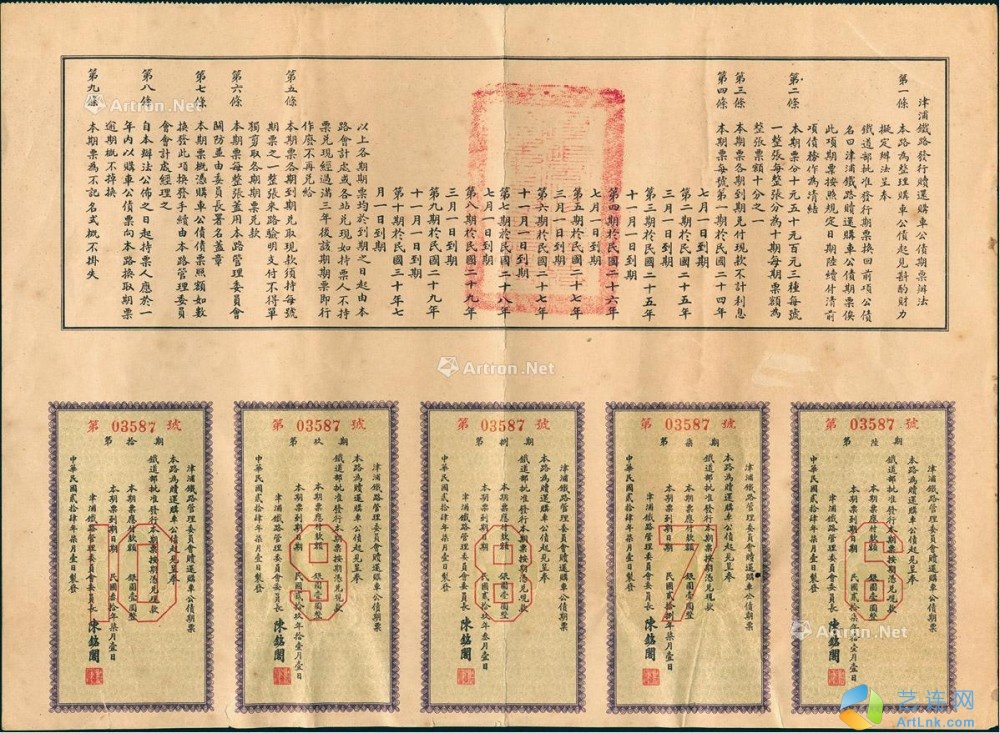 津浦鐵路發行贖還購車公債期票辦法
第一條 本路為整理購車公債起見斟酌財力
擬定辦法呈奉
鐵道部批准發行期票換回前項公債
名曰津浦鐵路贖還購車公債期票俟
此項期票按照規定日期陸續付清前
項債務作為清結
第二條 本期票分十元五十元百元三種每號
一整張每整張分為十期每期票額為
整張票額十分之一
第三條 本期票各期到期兌付現款不計利息
第四條 本期票每號第一期於民國二十四年
七月一日到期
第二期於民國二十五年
三月一日到期
第三期於民國二十五年
十一月一日到期
第四期於民國二十六年
七月一日到期
第五期於民國二十七年
三月一日到期
第六期於民國二十七年
十一月一日到期
第七期於民國二十八年
七月一日到期
第八期於民國二十九年
三月一日到期
第九期於民國二十九年
十一月一日到期
第十期於民國三十年七
月一日到期
以上各期期票均於到期之日起由本
路會計處或各站兌現如持票人不持
票兌現經過滿三年後該期期票即行
作廢不再兌給
第五條 本期票各期到期兌取現款須持每號
期票之一整張來路驗明支付不得單
獨剪取各期期票兌款
第六條 本期票每整張蓋用本路管理委員會
關防並由委員長署名蓋章
第七條 本期票概憑購車公債債票照額如數
換發此項換發手續由本路管理委員
會會計處經理之
第八條 自本辦法公佈之日起持票人應於一
年內以購車公債票向本路換取期票
逾期概不掉換
第九條 本期票為不記名式概不掛失
Artron.Net
Artron.Net
Artron.Net
第 03587 號
第陸期
津浦鐵路管理委員會贖還購車公債期票
本路為贖還購車公債起見呈奉
鐵道部批准發行本期票按期憑兌現款
本期票應付款額 銀圓壹圓整
本期票到期日期 民國貳拾柒年拾壹月壹日
津浦鐵路管理委員會委員長 陳銘閣
中華民國貳拾肆年柒月壹日製發
6
第 03587 號
第柒期
津浦鐵路管理委員會贖還購車公債期票
本路為贖還購車公債起見呈奉
鐵道部批准發行本期票按期憑兌現款
本期票應付款額 銀圓壹圓整
本期票到期日期 民國貳拾捌年柒月壹日
津浦鐵路管理委員會委員長 陳銘閣
中華民國貳拾肆年柒月壹日製發
7
第 03587 號
第捌期
津浦鐵路管理委員會贖還購車公債期票
本路為贖還購車公債起見呈奉
鐵道部批准發行本期票按期憑兌現款
本期票應付款額 銀圓壹圓整
本期票到期日期 民國貳拾玖年叁月壹日
津浦鐵路管理委員會委員長 陳銘閣
中華民國貳拾肆年柒月壹日製發
8
第 03587 號
第玖期
津浦鐵路管理委員會贖還購車公債期票
本路為贖還購車公債起見呈奉
鐵道部批准發行本期票按期憑兌現款
本期票應付款額 銀圓壹圓整
本期票到期日期 民國貳拾玖年拾壹月壹日
津浦鐵路管理委員會委員長 陳銘閣
中華民國貳拾肆年柒月壹日製發
9
第 03587 號
第拾期
津浦鐵路管理委員會贖還購車公債期票
本路為贖還購車公債起見呈奉
鐵道部批准發行本期票按期憑兌現款
本期票應付款額 銀圓壹圓整
本期票到期日期 民國叁拾年柒月壹日
津浦鐵路管理委員會委員長 陳銘閣
中華民國貳拾肆年柒月壹日製發
10
Artron.Net
艺连网
ArtLnk.com